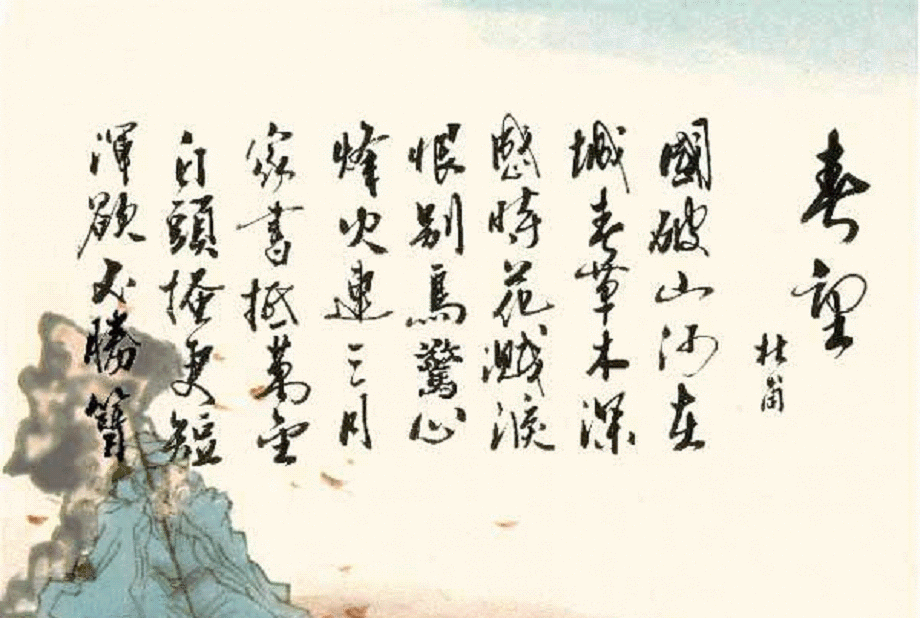 春望
杜甫
國破山河在
城春草木深
感時花濺淚
恨别鳥驚心
烽火連三月
家書抵萬金
白頭搔更短
渾欲不勝簪